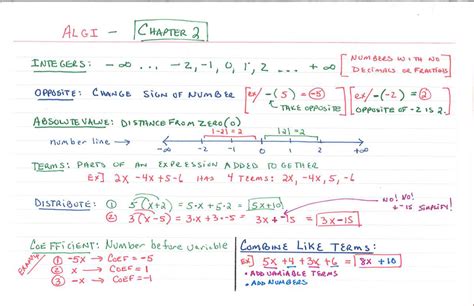 ALGI - CHAPTER 2
INTEGERS: -∞ ... -2, -1, 0, 1, 2 ... +∞ [NUMBERS WITH NO DECIMALS OR FRACTIONS]
OPPOSITE: CHANGE SIGN OF NUMBER [ex/ -(5) = -5 TAKE OPPOSITE] [ex/ -(-2) = 2 OPPOSITE OF -2 IS 2.]
ABSOLUTE VALUE: DISTANCE FROM ZERO (0)
|-2| = 2 |2| = 2
number line
-∞ -2 -1 0 +1 +2 +∞
TERMS: PARTS OF AN EXPRESSION ADDED TOGETHER
EX] 2X - 4X + 5 - 6 HAS 4 TERMS: 2X, -4X, 5, -6
DISTRIBUTE: ① 5(X+2) = 5·X + 5·2 = 5X+10
NO! NO!
+ -15 SIMPLIFY!
② 3(X-5) = 3·X + 3·-5 = 3X + -15 = 3X-15
COEFFICIENT: Number before variable
EXAMPLE
① -5X → COEF = -5
② X → COEF = 1
③ -X → COEF = -1
COMBINE LIKE TERMS:
EX] 5X + 4 + 3X + 6 = 8X + 10
• ADD VARIABLE TERMS
• ADD NUMBERS